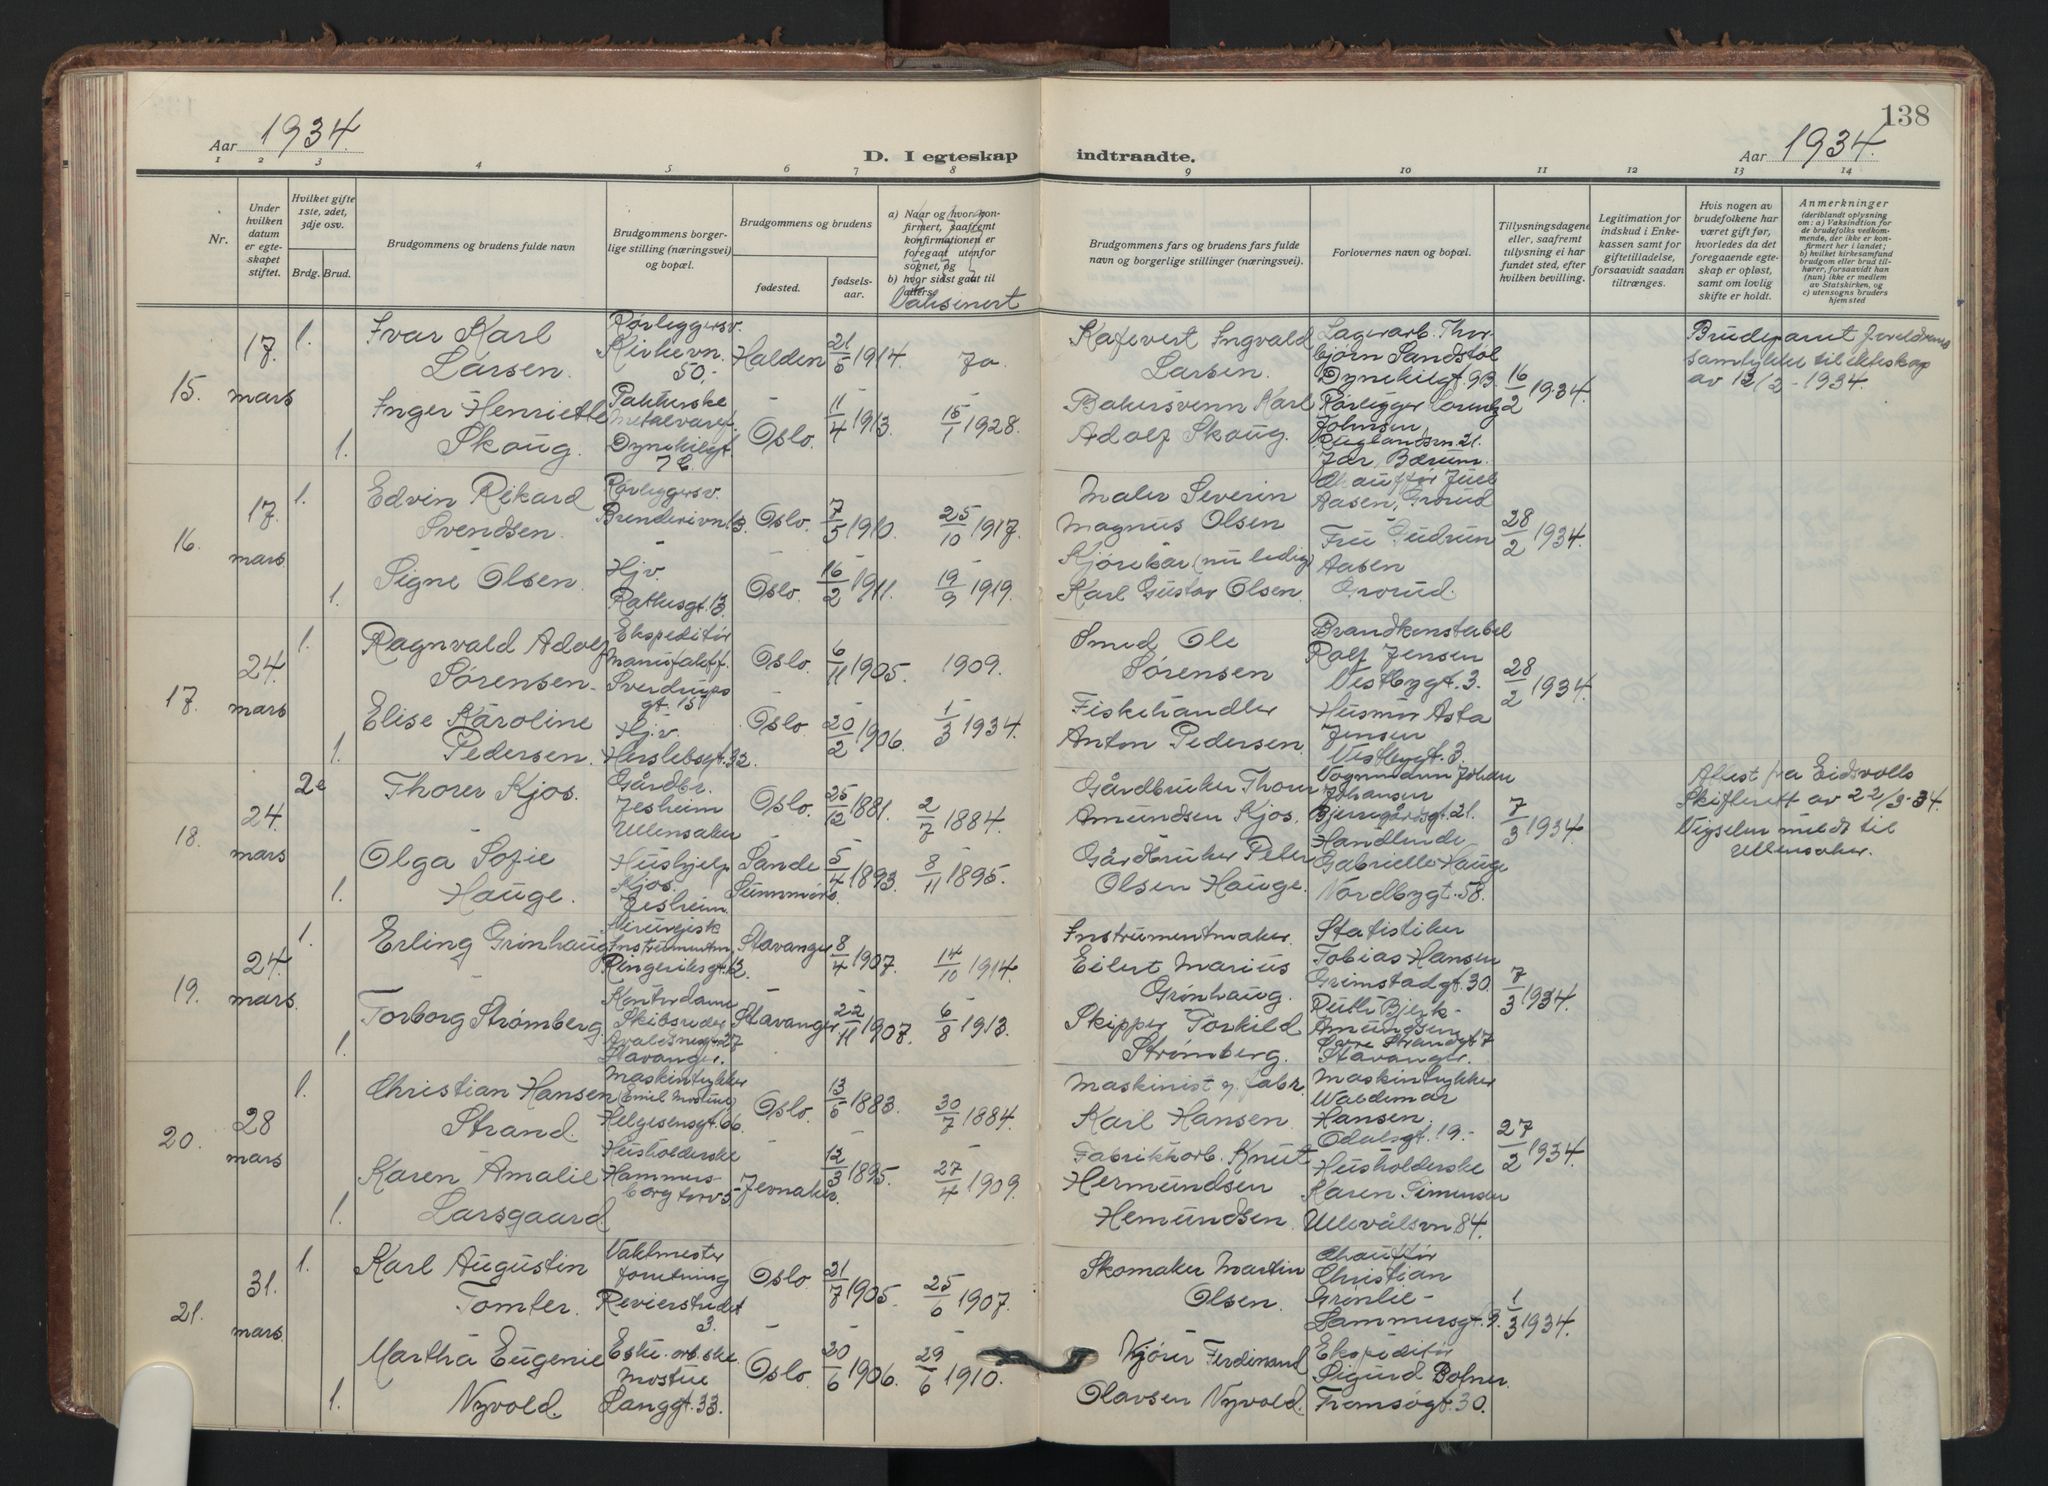 138
Aar 1934.
D. I egteskap
indtraadte.
Aar 1934.
1 2 3 4 5 6 7 8 9 10 11 12 13 14
Nr.
Under hvilken datum er egteskapet stiftet.
Hvilket gifte 1ste, 2det, 3dje osv.
Brdg. Brud.
Brudgommens og brudens fulde navn
Brudgommens borgerlige stilling (næringsvei) og bopæl.
Brudgommens og brudens
fødested.
fødselsaar.
a) Naar og hvor konfirmert, saafremt konfirmationen er foregaat utenfor sognet, og
b) hvor sidst gaat til alters.
Vaksinert
Brudgommens fars og brudens fars fulde navn og borgerlige stillinger (næringsvei).
Forlovernes navn og bopæl.
Tillysningsdagene eller, saafremt tillysning ei har fundet sted, efter hvilken bevilling.
Legitimation for indskud i Enkekassen samt for giftetilladelse, forsaavidt saadan tiltrænges.
Hvis nogen av brudefolkene har været gift før, hvorledes da det foregaaende egteskap er opløst, samt om lovlig skifte er holdt.
Anmerkninger
(deriblandt oplysning om: a) Vaksindtion for de brudefolks vedkommende, der ikke er konfirmert her i landet; b) hvilket kirkesamfund brudgom eller brud tilhører, forsaavidt han (hun) ikke er medlem av Statskirken, og c) utensogns bruders hjemsted
15.
17. mars
1.
Ivar Karl Larsen.
Rørleggersv. Kirkevn. 50.
Halden
21/5 1914.
Ja
Kafevert Ingvald Larsen.
Lagerarb. Thorbjørn Sandstøl Dynekilgt. 9B.
16/2 1934.
Brudeparet foreldrenes samtykke til ekteskap av 12/2 - 1934.
1.
Inger Henriette Skaug.
Pakkerske Metalvaref. Dynekilgt. 7 C.
Oslo.
11/4 1913.
15/1 1928.
Bakersvenn Karl Adolf Skaug.
Rørlegger Lorentz Johnsen, Ruglandsvn. 21. Jar, Bærum.
16.
17. mars
1.
Edvin Rikard Svendsen.
Rørleggersv. Brenderivn. 13.
Oslo.
7/5 1910.
25/10 1917.
Maler Severin Magnus Olsen
Chauffør Juel Aasen, Grorud
28/2 1934.
1.
Signe Olsen.
Hjv. Rathusgt. 13
Oslo.
16/2 1911.
19/9 1919.
Kjørekar (nu ledig) Karl Gustav Olsen.
Frü Gudrun Aasen Grorud.
17.
24. mars
1.
Ragnvald Adolf Sørensen.
Ekspeditør Manufaktf. Sverdrups gt. 15
Oslo.
6/11 1905.
1909.
Smed Ole Sørensen
Brandkonstabel Ralf Jensen Vestbygt. 3.
28/2 1934.
1.
Elise Karoline Pedersen.
Hjv. Herslebsgt. 32.
Oslo.
20/2 1906.
1/3 1934.
Fiskehandler Anton Pedersen.
Husmor Asta Jensen Vestbygt. 3.
18.
24. mars
2e
Thorer Kjos.
Gårdbr. Jesheim Ullensaker
Oslo.
25/12 1881.
2/7 1884.
Gårdbruker Thorer Amundsen Kjos.
Vognmann Johan Johansen Bjerregårdsgt. 21.
7/3 1934.
Attest fra Eidsvolls Skifterett av 22/3-34.
Vigselen meldt til Ullensaker.
1.
Olga Sofie Hauge.
Hushjelp Kjos. Jesheim.
Sande Sunnmøre.
5/4 1893.
8/11 1895.
Gårdbruker Peter Olsen Hauge.
Handlende Gabrielle Hauge Nordbygt. 58.
19.
24. mars.
1.
Erling Grønhaug
Kirurgisk Instrumentm. Ringeriksgt. 12.
Stavanger
8/4 1907.
14/10 1914.
Instrumentmaker. Eilert Marius Grønhaug.
Statistiker Tobias Hansen Grimstadgt. 30.
7/3 1934.
1.
Torborg Strømberg.
Kontordame Skibsreder Avaldsnesgt. 27 Stavanger.
Stavanger
22/11 1907.
6/8 1913.
Skipper Torkild Strømberg.
Ruth Bjerk-Amundsen Øvre Strandgt 17 Stavanger.
20.
28 mars
1.
Christian Hansen Strand.
Maskintrykker (Emil Mostue) Helgesensgt. 66.
Oslo.
13/6 1883.
30/7 1884.
Maskinist v. fabr. Karl Hansen.
Maskintrykker Waldemar Hansen. Odalsgt. 19.
27/2 1934.
1.
Karen Amalie Larsgaard
Husholderske Hammersborg torv 5
Jevnaker.
12/3 1895.
27/4 1909.
Fabrikkarb. Knut Hermundsen Hemundsen.
Husholderske Karen Simensen Ullevålsvn. 84.
21.
31. mars.
1.
Karl Augustin Tomter.
Vaktmester forretning Revierstredet 3.
Oslo.
21/7 1905.
25/6 1907.
Skomaker Martin Olsen.
Chauffør Christian Grønlie- Lammersgt. 9.
1/3 1934.
1.
Martha Eugenie Nyvold.
Eske-arb.ske Mostue Langgt. 33.
Oslo.
20/6 1906.
29/6 1910.
Kjører Ferdinand Olavsen Nyvold.
Ekspeditør Sigurd Bolner. Tromsøgt. 30.